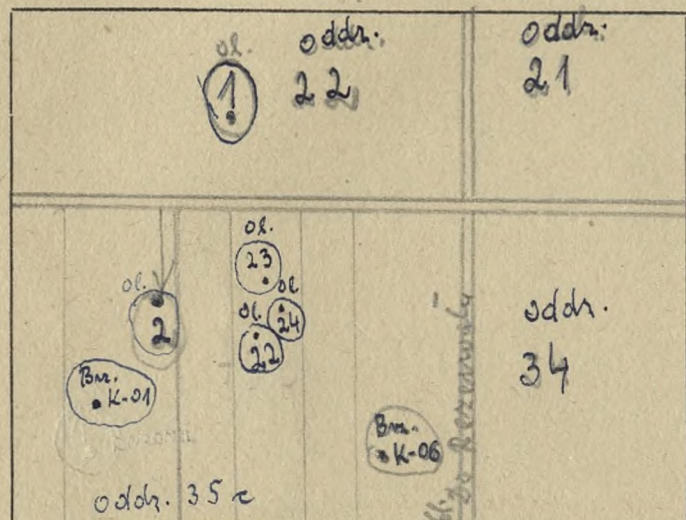 ol.
1
oddz.
22
oddz.
21
ol.
23
ol
24
ol.
22
ol.
2
Brz.
K-01
Brz.
K-06
oddz.
34
do Rezerwatu
oddz. 35 c